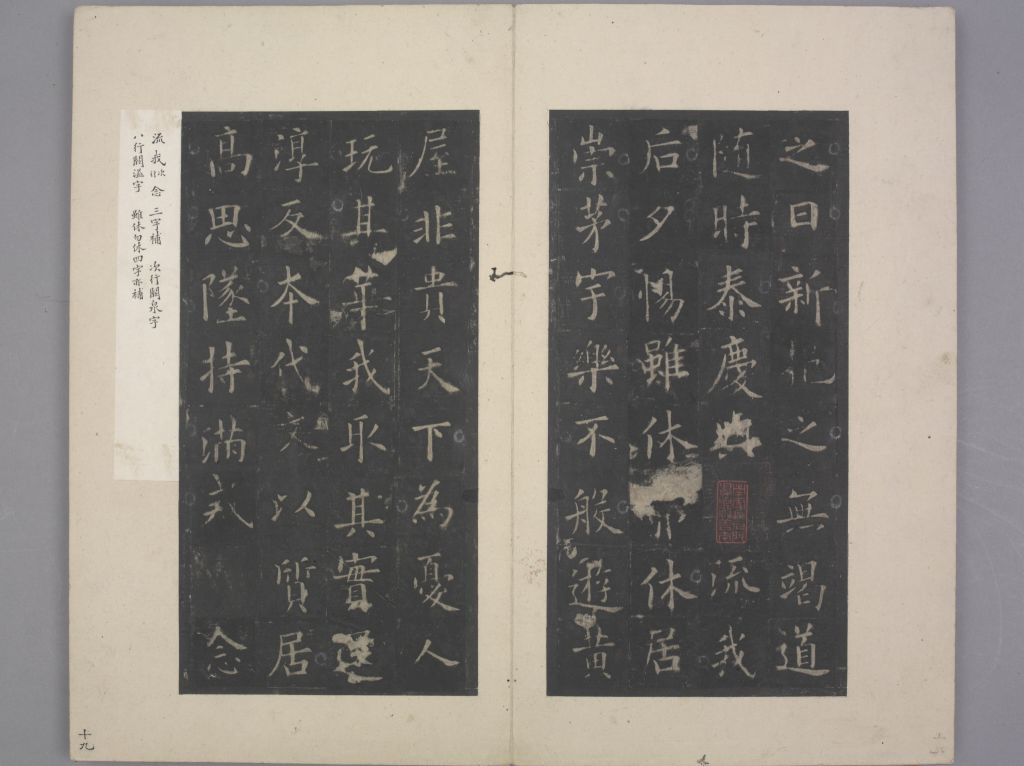 之日新挹之無竭道
随時泰慶與流我
后夕惕雖休休居
崇茅宇樂不般遊黃
屋非貴天下為憂人
玩其華我取其實還
淳反本代文以質居
高思墜持滿戒念
流我次行念三字補 次行闕泉字
八行闕溢字 雖休勿休四字亦補
十九